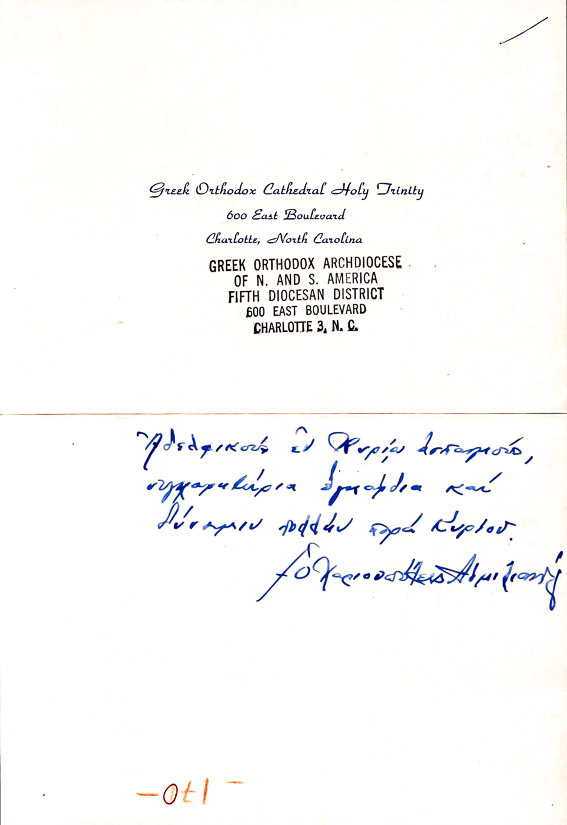 Greek Orthodox Cathedral Holy Trinity
600 East Boulevard
Charlotte, North Carolina
GREEK ORTHODOX ARCHDIOCESE
OF N. AND S. AMERICA
FIFTH DIOCESAN DISTRICT
600 EAST BOULEVARD
CHARLOTTE 3, N. C.
Ἀδελφικοὺς ἐν Κυρίῳ ἀσπασμούς,
συγχαρητήρια ἐγκάρδια καὶ
δύναμιν πολλὴν παρὰ Κυρίου.
† Ὁ Χαριουπόλεως Αἰμιλιανός
-170-